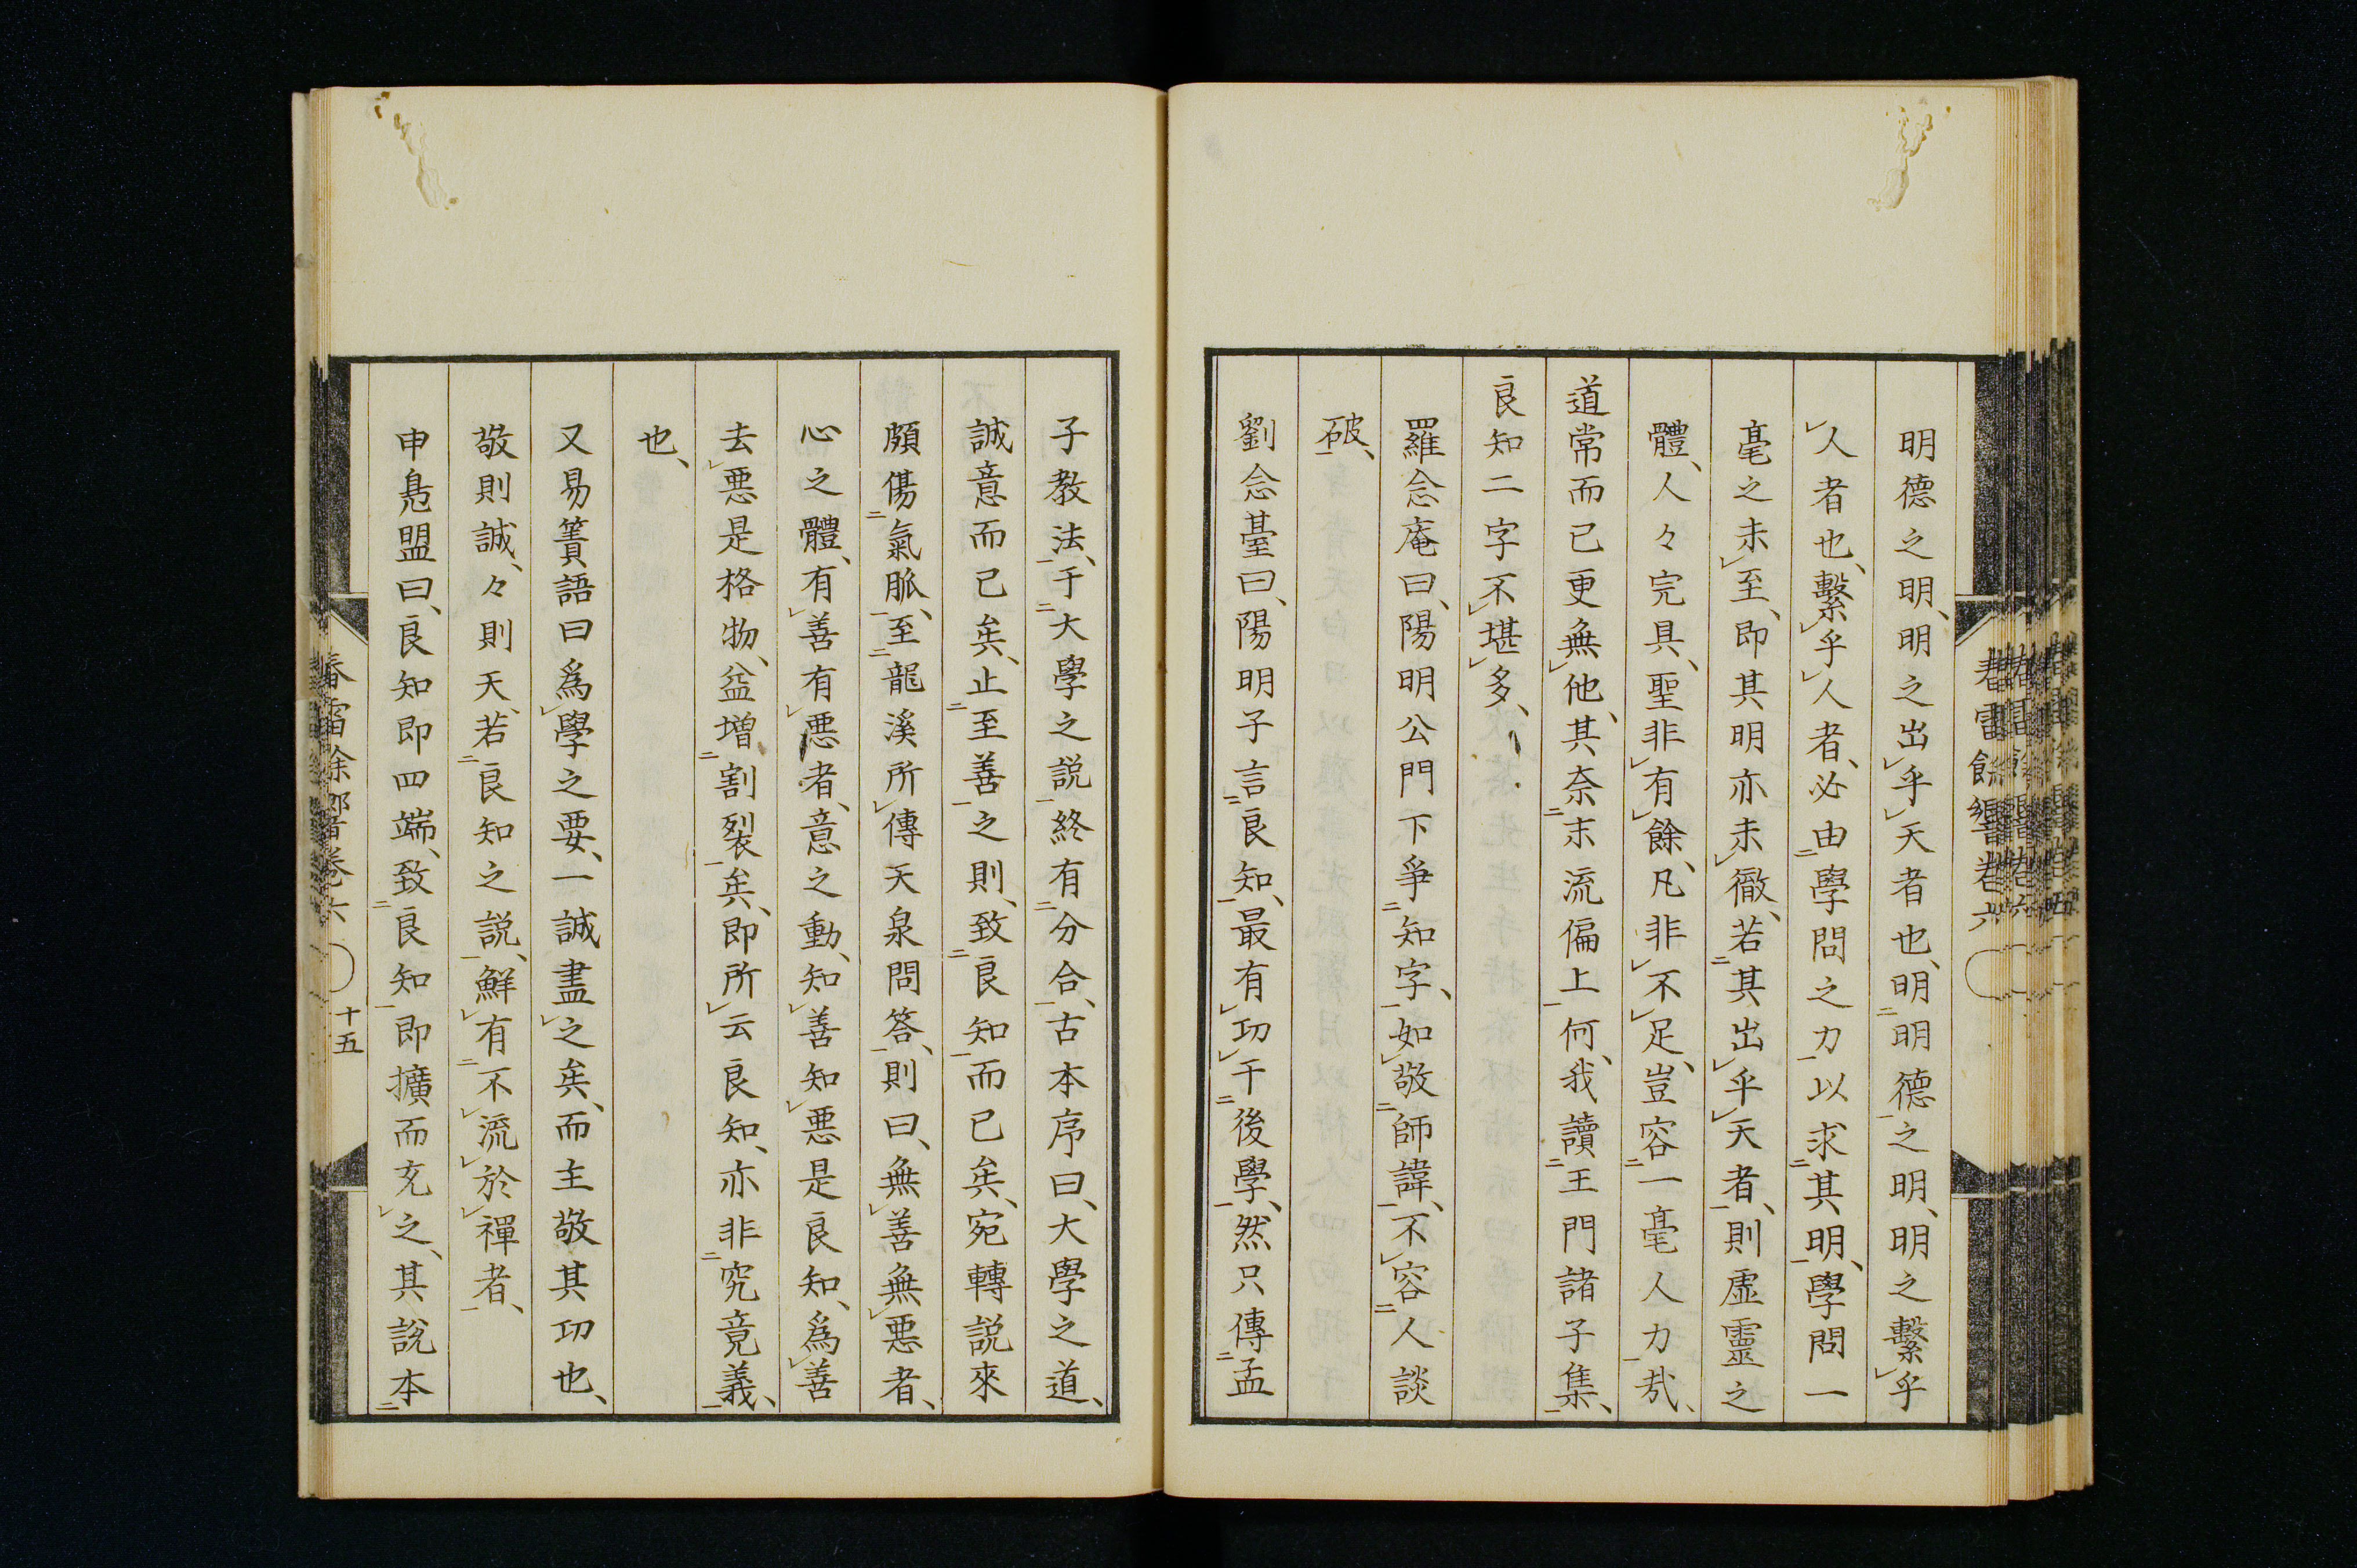 明德之明、明之出乎天者也、明明德之明、明之繫乎
人者也、繫乎人者、必由學問之力以求其明、學問一
毫之未至、即其明亦未徹、若其出乎天者、則虛靈之
體、人々完具、聖非有餘、凡非不足、豈容一毫人力哉、
道常而已更無他、其奈末流偏上何、我讀王門諸子集、
良知二字不堪多、
羅念庵曰、陽明公門下爭知字、如敬師諱、不容人談
破、
劉念臺曰、陽明子言良知、最有功于後學、然只傳孟
春雷餘響卷六
子教法、于大學之説終有分合、古本序曰、大學之道、
誠意而已矣、止至善之則、致良知而已矣、宛轉説來
頗傷氣脈、至龍溪所傳天泉問答、則曰、無善無惡者、
心之體、有善有惡者、意之動、知善知惡是良知、爲善
去惡是格物、益增割裂矣、即所云良知、亦非究竟義、
也、
又易簀語曰爲學之要、一誠盡之矣、而主敬其功也、
敬則誠、々則天、若良知之説、鮮有不流於禪者、
申鳧盟曰、良知即四端、致良知即擴而充之、其説本
春雷餘響卷六
十五